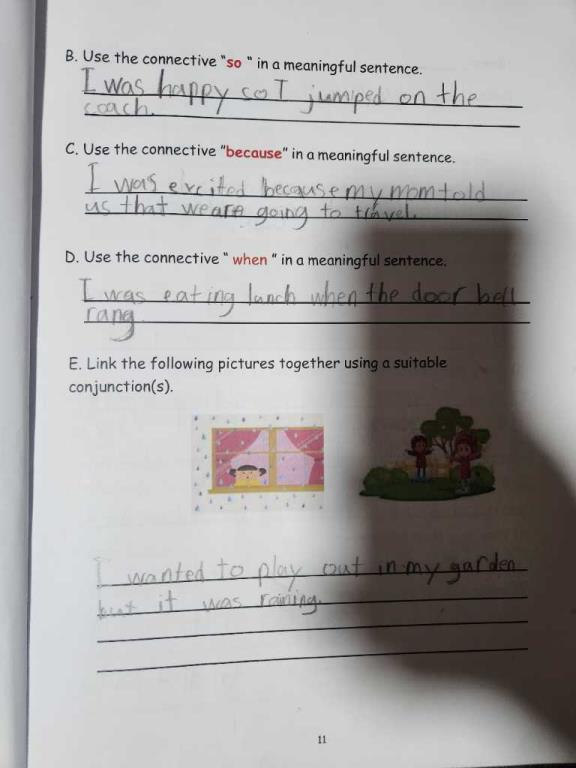 B. Use the connective "so " in a meaningful sentence.
I was happy so I jumped on the
coach.
C. Use the connective "because" in a meaningful sentence.
I was excited because my mom told
us that we are going to travel.
D. Use the connective " when " in a meaningful sentence.
I was eating lunch when the door bell
rang
E. Link the following pictures together using a suitable
conjunction(s).
I wanted to play out in my garden
but it was raining.
11